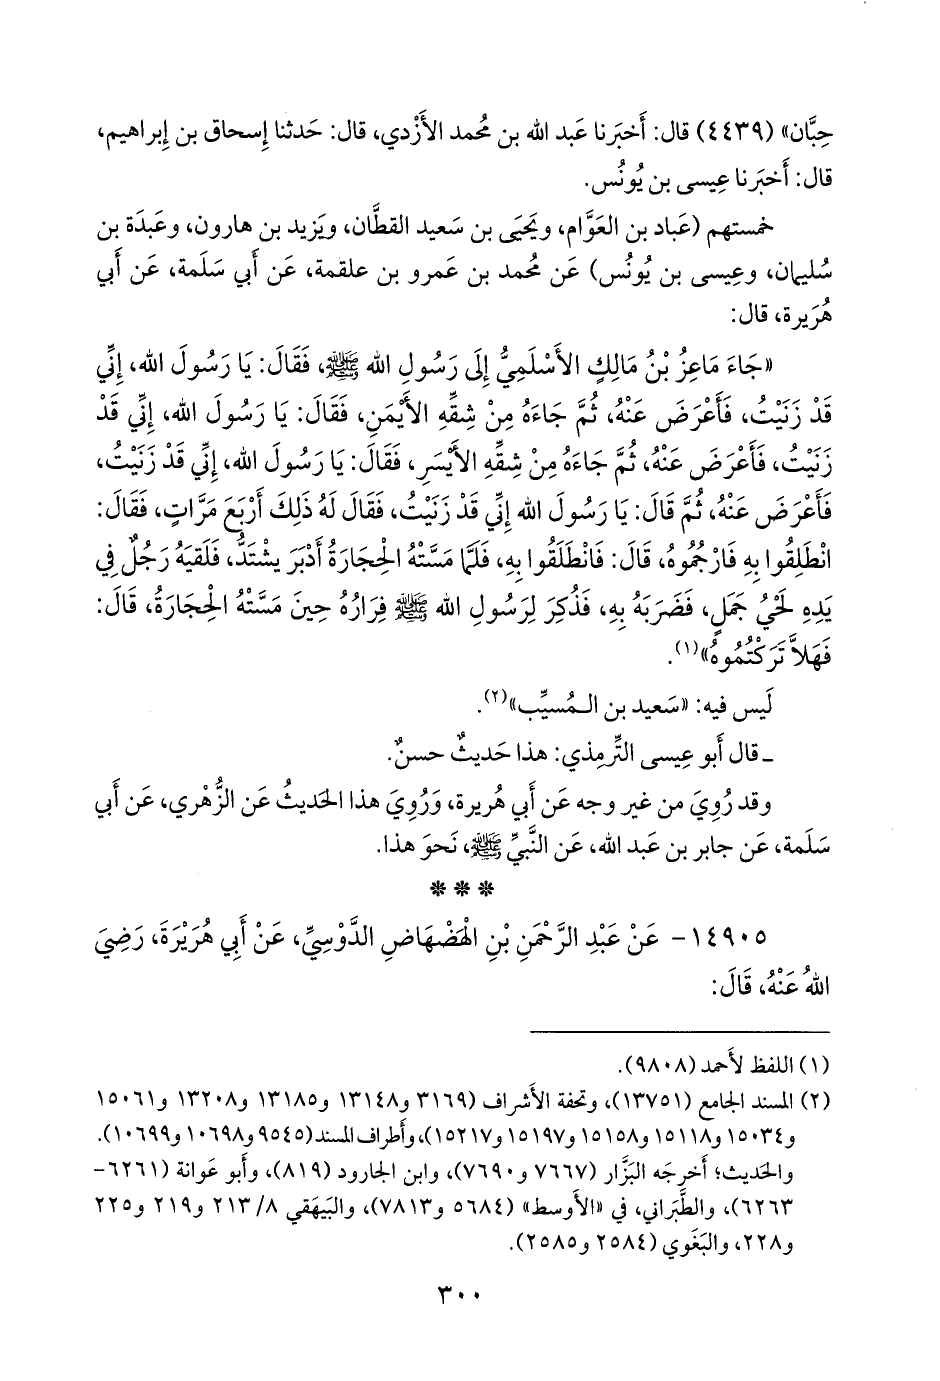 حِبَّان» (٤٤٣٩) قال: أَخبَرنا عَبد الله بن مُحمد الأَزْدي، قال: حَدثنا إِسحاق بن إِبراهيم،
قال: أَخبَرنا عِيسى بن يُونُس.
خمستهم (عَباد بن العَوَّام، ويَحيَى بن سَعيد القطَّان، ويَزيد بن هارون، وعَبدَة بن
سُليمان، وعِيسى بن يُونُس) عَن مُحمد بن عَمرو بن علقمة، عَن أَبي سَلَمة، عَن أَبي
هُرَيرة، قال:
«جَاءَ مَاعِزُ بْنُ مَالِكٍ الأَسْلَمِيُّ إِلَى رَسُولِ الله ﷺ، فَقَالَ: يَا رَسُولَ الله، إِنِّي
قَدْ زَنَيْتُ، فَأَعْرَضَ عَنْهُ، ثُمَّ جَاءَهُ مِنْ شِقِّهِ الأَيْمَنِ، فَقَالَ: يَا رَسُولَ الله، إِنِّي قَدْ
زَنَيْتُ، فَأَعْرَضَ عَنْهُ، ثُمَّ جَاءَهُ مِنْ شِقِّهِ الأَيْسَرِ، فَقَالَ: يَا رَسُولَ الله، إِنِّي قَدْ زَنَيْتُ،
فَأَعْرَضَ عَنْهُ، ثُمَّ قَالَ: يَا رَسُولَ الله إِنِّي قَدْ زَنَيْتُ، فَقَالَ لَهُ ذَلِكَ أَرْبَعَ مَرَّاتٍ، فَقَالَ:
انْطَلِقُوا بِهِ فَارْجُمُوهُ، قَالَ: فَانْطَلَقُوا بِهِ، فَلَمَّا مَسَّتْهُ الْحِجَارَةُ أَدْبَرَ يَشْتَدُّ، فَلَقيَهُ رَجُلٌ فِي
يَدِهِ لَحْيُ جَمَلٍ، فَضَرَبَهُ بِهِ، فَذُكِرَ لِرَسُولِ الله ﷺ فِرَارُهُ حِينَ مَسَّتْهُ الْحِجَارَةُ، قَالَ:
فَهَلاَّ تَرَكْتُمُوهُ»(١).
لَيس فيه: «سَعيد بن الـمُسيِّب»(٢).
ـ قال أَبو عِيسى التِّرمِذي: هذا حَديثٌ حسنٌ.
وقد رُوِيَ من غير وجه عَن أَبي هُريرة، وَرُوِيَ هذا الحَديثُ عَن الزُّهْري، عَن أَبي
سَلَمة، عَن جابر بن عَبد الله، عَن النَّبيِّ ﷺ، نَحوَ هذا.
* * *
١٤٩٠٥- عَنْ عَبْدِ الرَّحْمَنِ بْنِ الْهَضْهَاضِ الدَّوْسِيِّ، عَنْ أَبِي هُرَيْرَةَ، رَضِيَ
اللهُ عَنْهُ، قَالَ:
(١) اللفظ لأَحمد (٩٨٠٨).
(٢) المسند الجامع (١٣٧٥١)، وتحفة الأَشراف (٣١٦٩ و١٣١٤٨ و١٣١٨٥ و١٣٢٠٨ و١٥٠٦١
و١٥٠٣٤ و١٥١١٨ و١٥١٥٨ و١٥١٩٧ و١٥٢١٧)، وأَطراف المسند (٩٥٤٥ و١٠٦٩٨ و١٠٦٩٩).
والحَديث؛ أَخرجَه البَزَّار (٧٦٦٧ و٧٦٩٠)، وابن الجارود (٨١٩)، وأَبو عَوانة (٦٢٦١-
٦٢٦٣)، والطَّبَراني، في «الأَوسط» (٥٦٨٤ و٧٨١٣)، والبَيهَقي ٨/ ٢١٣ و٢١٩ و٢٢٥
و٢٢٨، والبَغَوي (٢٥٨٤ و٢٥٨٥).
٣٠٠